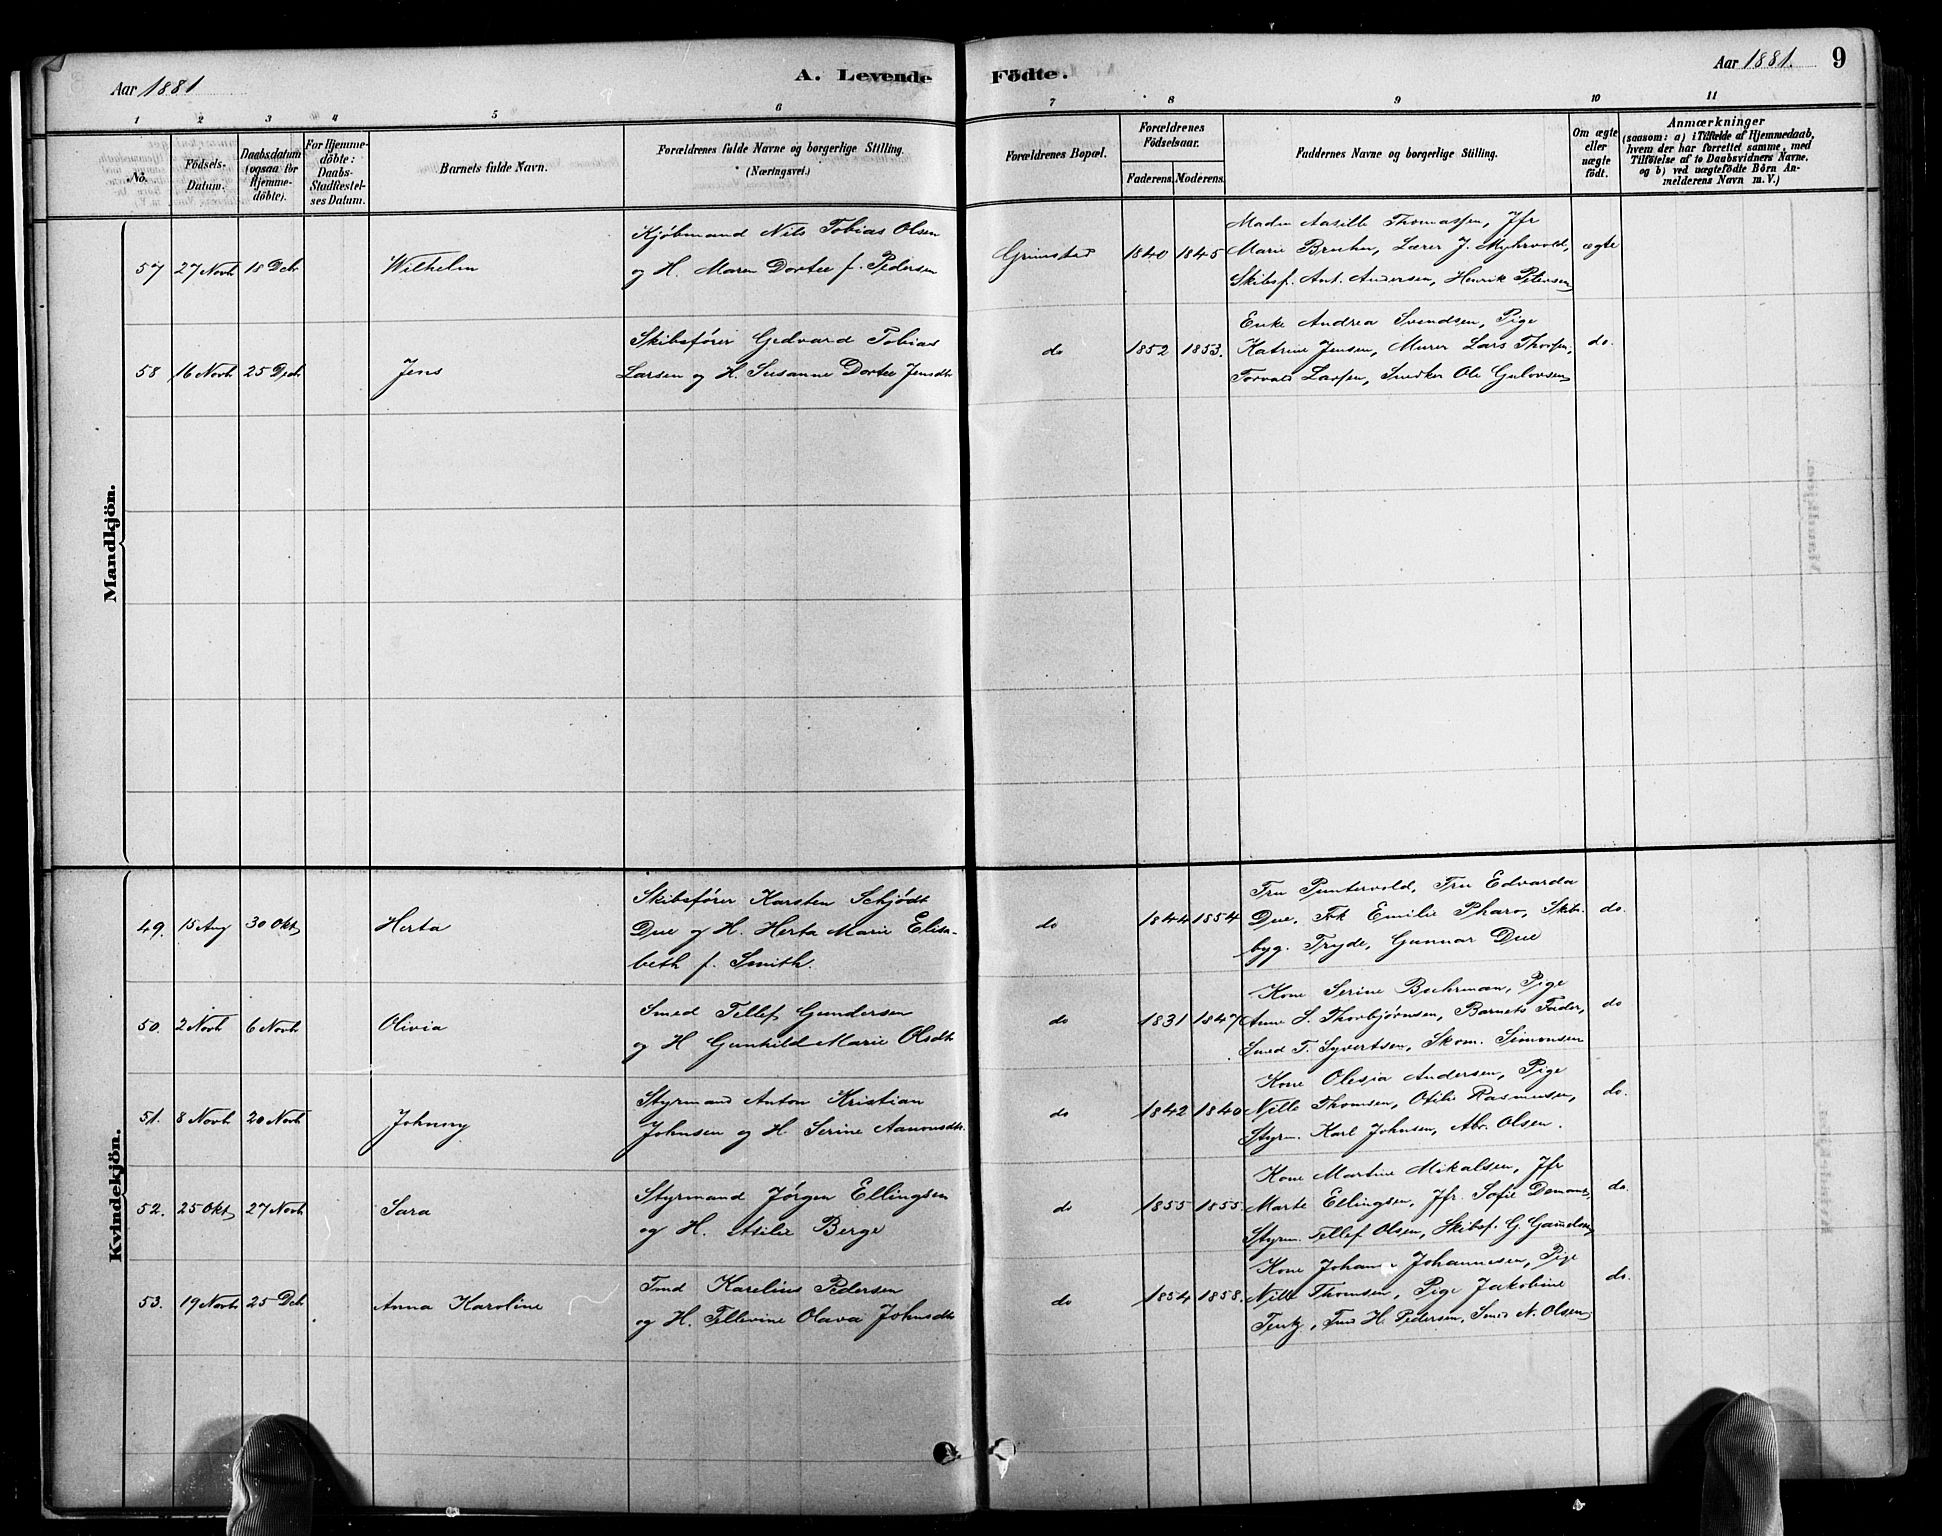 Aar 1881
A. Levende Fødte.
Aar 1881. 9
1 2 3 4 5 6 7 8 9 10 11
No.
Födsels-Datum.
Daabsdatum (ogsaa for Hjemme-döbte).
For Hjemme-döbte: Daabs-Stadfæstel-ses Datum.
Barnets fulde Navn.
Forældrenes fulde Navne og borgerlige Stilling. (Næringsvei.)
Forældrenes Bopæl.
Forældrenes Födselsaar.
Faderens. Moderens.
Faddernes Navne og borgerlige Stilling.
Om ægte eller uægte födt.
Anmærkninger
(saasom: a) i Tilfælde af Hjemmedaab,
hvem der har forrettet samme, med
Tilföielse af to Daabsvidners Navne.
og b) ved uægtefödte Börn An-
melderens Navn m. V.)
Mandkjön.
57 27 Novb 18 Dcb Wilhelm
Kjøbmand Nils Tobias Olsen
og H. Maren Dortee f. Pedersen
Grimstad 1840 1845
Madm Aasille Thomassen, Jfr
Marie Bruhn, Lærer J. Myhrvold,
Skibsf. Ant. Andersen, Henrik Petersen
ægte
58 16 Novb 25 Dcb Jens
Skibsfører Gedvard Tobias
Larsen og H. Susanne Dortee Jensdtr
do 1852 1853.
Enke Andrea Svendsen, Pige
Katrine Jensen, Murer Lars Thorsen,
Torvald Larsen, Snedker Ole Gulovsen
do.
Kvindekjön.
49. 15 Aug 30 Okt Herta
Skibsfører Karsten Schjödt
Due og H. Herta Marie Elisa-
beth f. Smith.
do 1844 1854
Fru Puntervold, Fru Edvarda
Due, Frk Emilie Pharo, Skibs-
byg. Fryde, Gunnar Due
do.
50. 2 Novb 6 Novb Olivia
Smed Tellef Gundersen
og H Gunhild Marie Olsdtr
do 1831 1847
Kone Serine Bschrman, Pige
Anne S. Thorbjørnsen, Barnets Fader,
Smed T. Syvertsen, Skom. Simonsen
do
51. 8 Novb 20 Novb Johnny
Styrmand Anton Kristian
Johnsen og H Serine Aanonsdtr.
do 1842 1840
Kone Olesia Andersen, Pige
Nille Thomsen, Otilie Rasmussen,
Styrm. Karl Johnsen, Abr. Olsen.
do.
52. 25 Okt 27 Novb Sara
Styrmand Jørgen Ellingsen
og H. Asilie Berge
do 1855 1855.
Kone Martine Mikalsen, Jfr
Marte Ellingsen, Jfr. Sofie
Styrm. Tellef Olsen, Skibsf. G.
do.
53. 19 Novb 25 Dcb Anna Karoline
Tmd Karelius Pedersen
og H. Tellevine Olava Johnsdtr
do 1854 1858.
Kone Johanne Johannesen, Pige
Nille Thomsen, Pige Jakobine
Terkj, Tmd H. Pedersen, Smed N. Olsen
do.